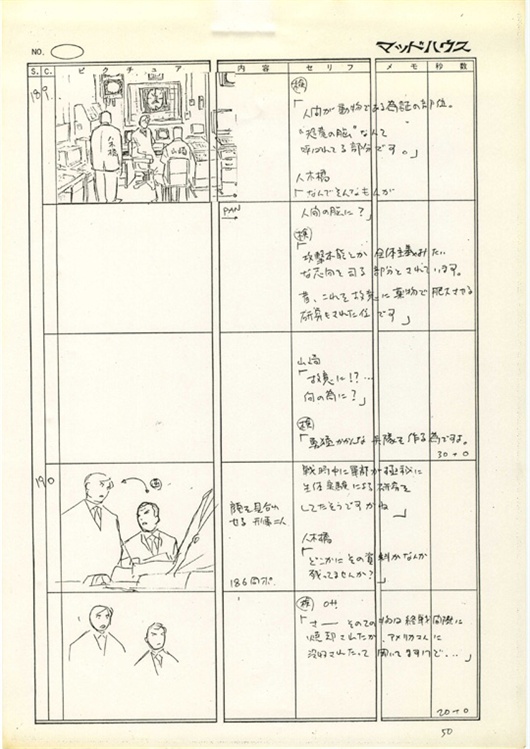 NO.
マッドハウス
S. C. ピクチュア 内容 セリフ メモ 秒数
189
八木橋
山崎
検
「人間が動物である為証の部位。
"恐竜の脳"なんて
呼ばれてる部分です。」
八木橋
「なんでそんなもんが
PAN
人間の脳に?」
検
「攻撃本能とか 全体主義みたい
な志向を司る 部分とされています。
昔、これを故意に薬物で肥大させる
研究もされた位です」
山崎
「故意に!?…
何の為に?」
検
「勇猛かかんな兵隊を作る為ですよ。
30+0
190
顔を見合わ
せる 刑事二人
186同ポ
戦時中に軍部が極秘に
生体実験による研究を
してたそうですがね」
八木橋
「どこかにその資料かなんか
残ってませんか?」
検 OFF
「さーー その手の物は終戦間際に
焼却されたか、アメリカさんに
没収されたって聞いてますけど…」
20+0
50